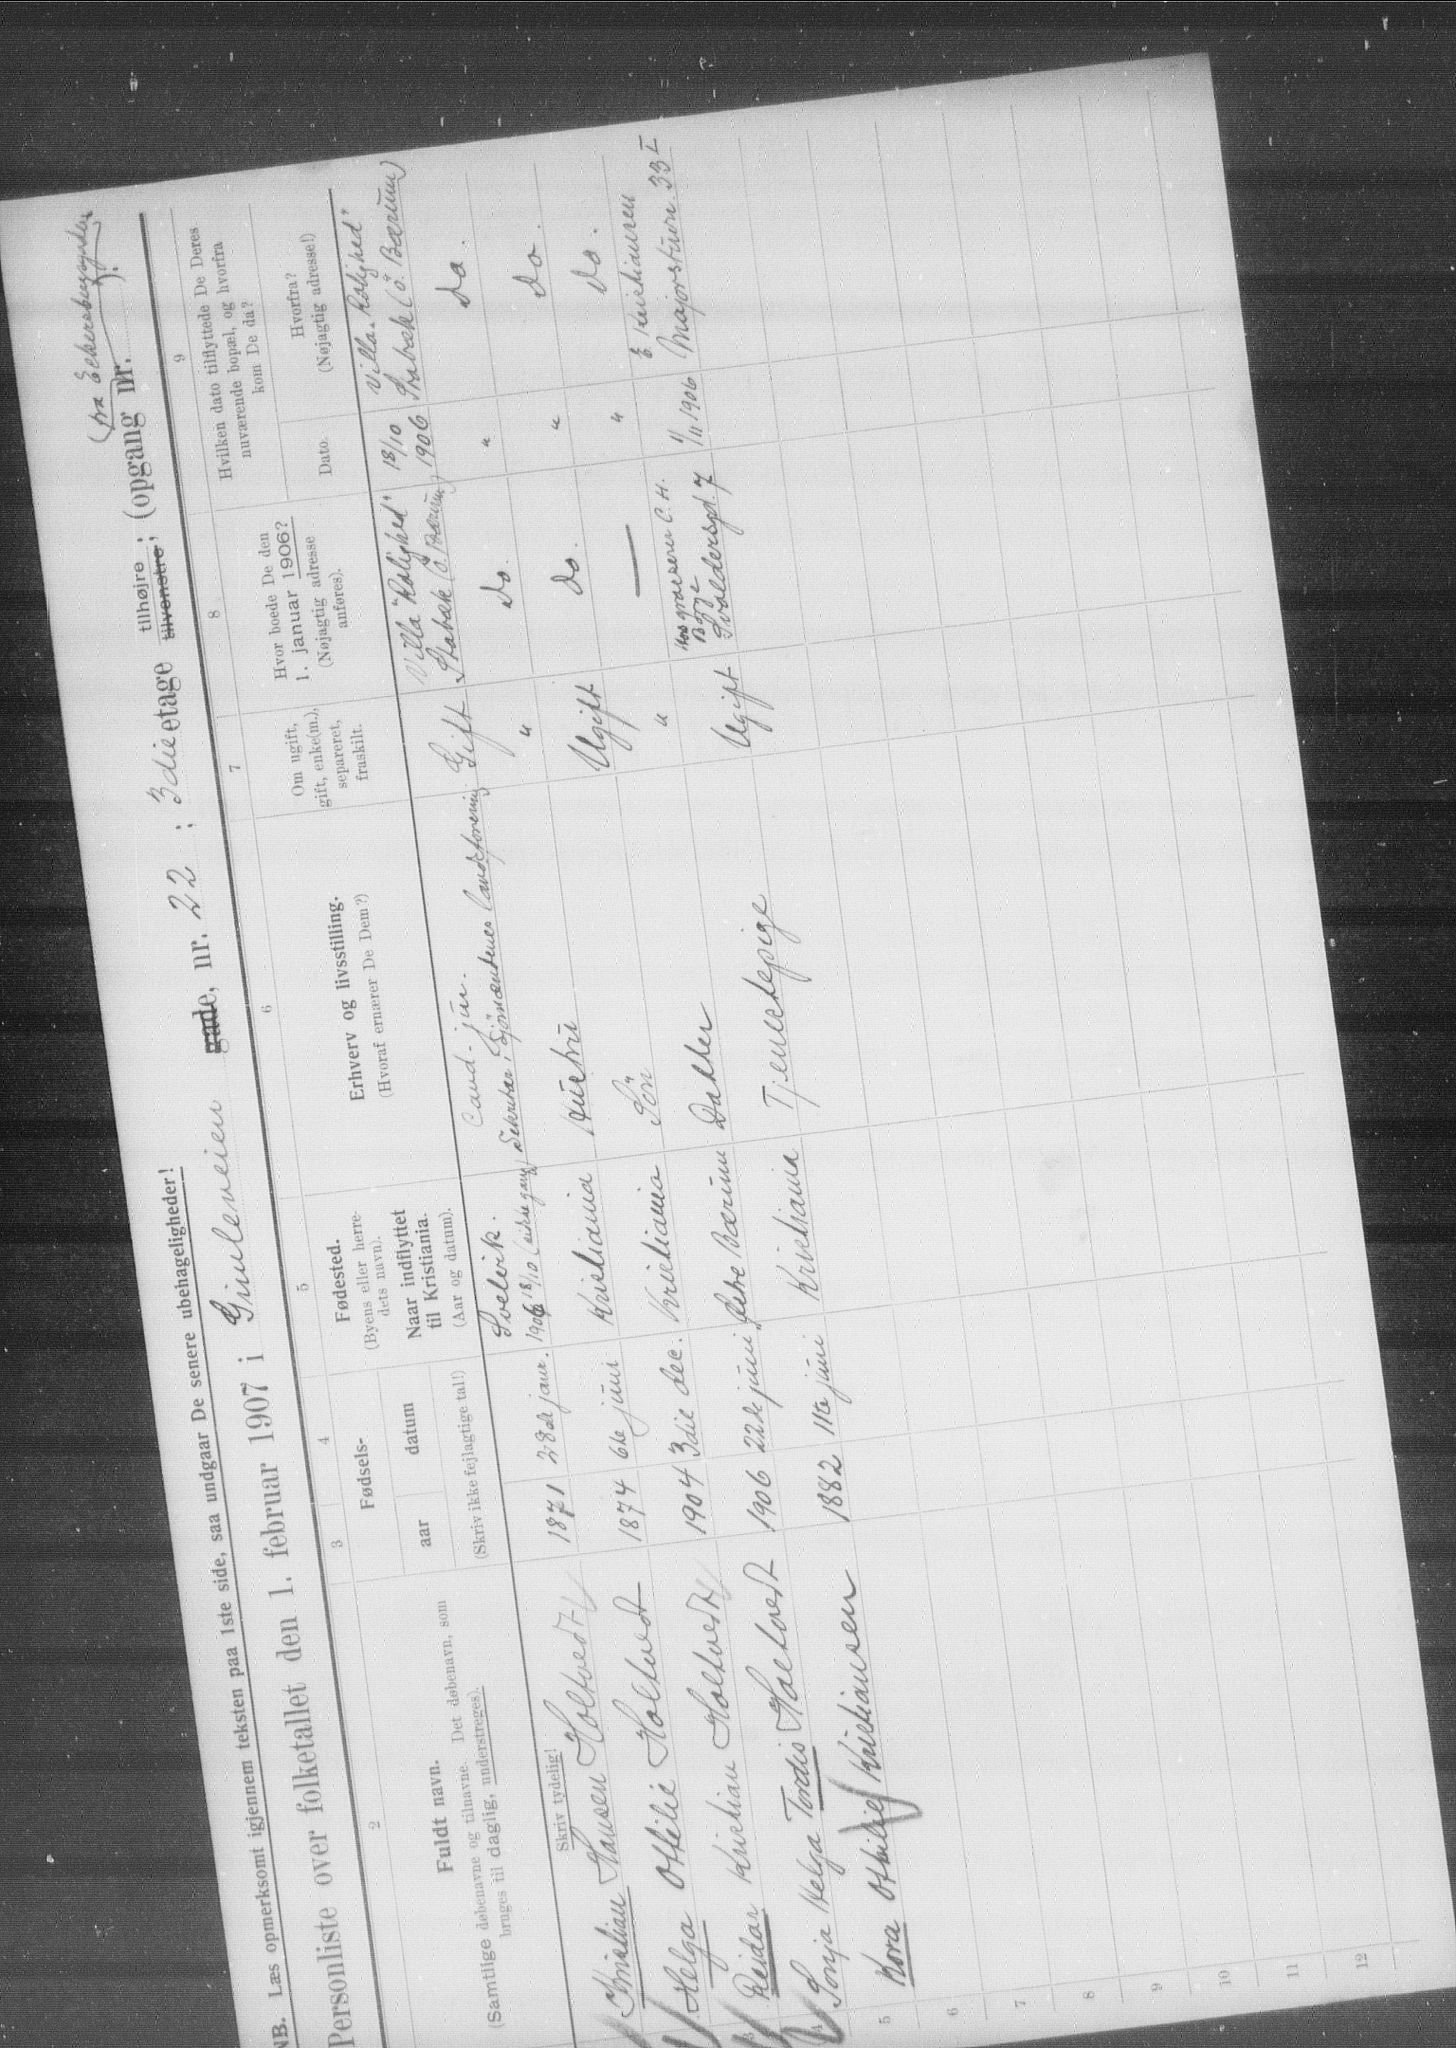 (fra Eckersbergsgaden)
NB. Læs opmerksomt igjennem teksten paa 1ste side, saa undgaar De senere ubehageligheder!
Personliste over folketallet den 1. februar 1907 i Giuleveien gade, nr. 22 ; 3die etage tilhøjre ; tilvenstre ; (opgang nr. ).
2
3
4
5
6
7
8
9
Fuldt navn.
(Samtlige døbenavne og tilnavne. Det døbenavn, som
bruges til daglig, understreges).
Skriv tydelig!
Fødsels-
aar
datum
(Skriv ikke fejlagtige tal!)
Fødested.
(Byens eller herre-
dets navn).
Naar indflyttet
til Kristiania.
(Aar og datum).
Erhverv og livsstilling.
(Hvoraf ernærer De Dem?)
Om ugift,
gift, enke(m.),
separeret,
fraskilt.
Hvor boede De den
1. januar 1906?
(Nøjagtig adresse
anføres).
Hvilken dato tilflyttede De Deres
nuværende bopæl, og hvorfra
kom De da?
Dato.
Hvorfra?
(Nøjagtig adresse!)
Kristian Hansen Holtvedt 1871 28de janr. Svelvik. 1906 18/10 Cand. jur. Sekretær i Sjömændenes Landsforening Gift Villa "Rolighed" Stabæk (Ö. Bærum) 18/10 1906 Villa "Rolighed" Stabæk (Ö. Bærum)
Helga Ottilie Holtvedt 1874 6te juni Kristiania Hustru " Do. " Do.
Reidar Kristian Holtvedt 1904 3die dec. Kristiania Sön Ugift Do. " Do.
4 Sonja Helga Tordis Holtvedt 1906 22de juni Östre Bærum Datter " — " Do.
5 Kora Othilie Kristiansen 1882 11te juni Kristiania Tjenestepige Ugift Hos grosserer C. H. Bögge Svoldersgd. 7 1/11 1906 E. Kristiansen Majorstuen 33 I
6
7
8
9
10
11
12